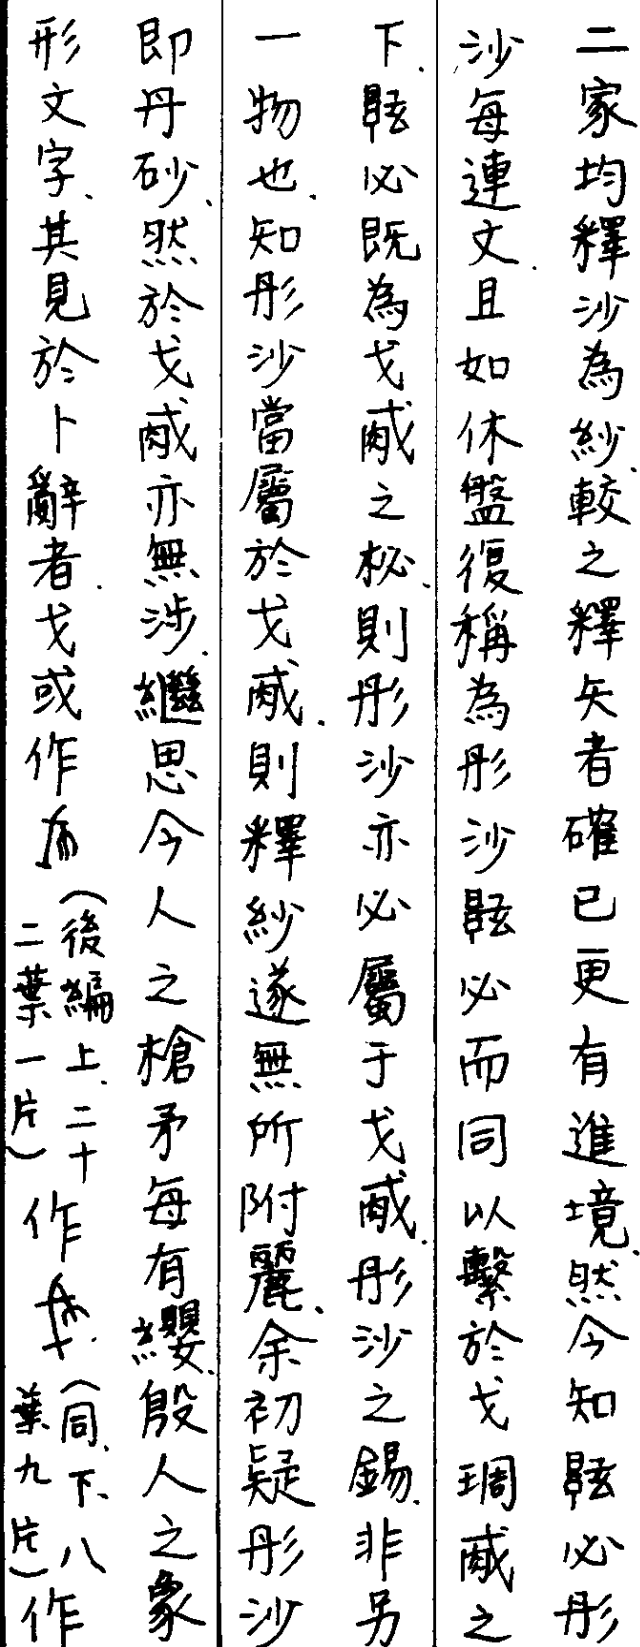 二家均釋沙為紗、較之釋矢者確已更有進境、然今知䩙必彤
沙每連文、且如休盤復稱為彤沙䩙必而同以繫於戈琱㦸之
下、䩙必既為戈㦸之柲、則彤沙亦必屬于戈㦸、彤沙之錫、非另
一物也、知彤沙當屬於戈㦸、則釋紗遂無所附麗、余初疑彤沙
即丹砂、然於戈㦸亦無涉、繼思今人之槍矛每有纓、殷人之象
形文字、其見於卜辭者、戈或作（後編上、二十二葉一片）作（同、下、八葉九片）作